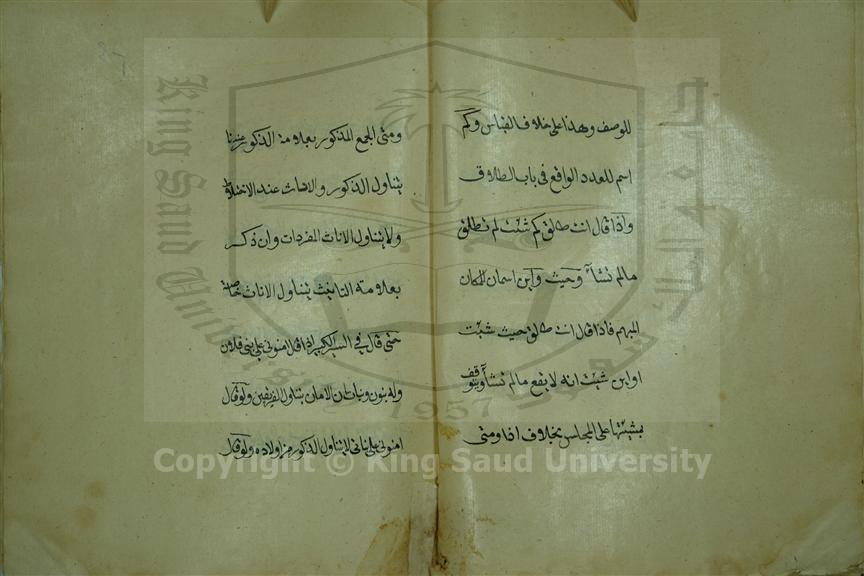 للوصف وهذا على خلاف القياس وكم
اسم للعدد الواقع في باب الطلاق
واذا قال انت طالق كم شئت لم تطلق
مالم تشأ وحيث واين اسمان للمكان
المبهم فاذا قال انت طالق حيث شئت
او اين شئت انه لا يقع مالم تشأ ويتوقف
بمشيئتها على المجلس بخلاف اذا ومتى
ومتى الجمع المذكور بعلامة الذكور عندنا
يتناول الذكور والاناث عند الاختلاط
ولا يتناول الاناث المفردات وان ذكر
بعلامة التانيث يتناول الاناث خاصة
حتى قال في السير الكبير اذا قال امنوني على بني فلان
وله بنون وبنات ان الامان يتناول الفريقين ولو قال
امنوني على بناتي لا يتناول الذكور من اولاده ولو قال
King Saud University
1957
Copyright © King Saud University